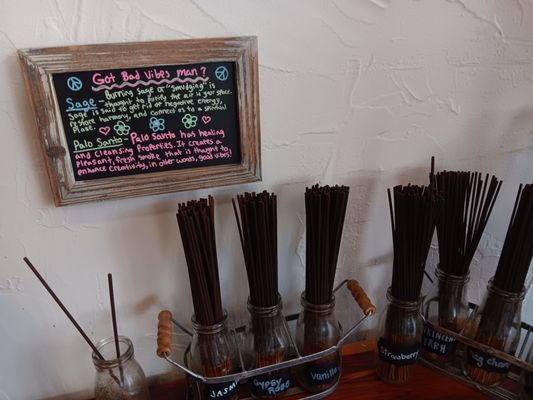 Got Bad Vibes Man?
Sage - Burning Sage or "smudging" is
thought to purify the air in your space.
Sage is said to get rid of negative energy,
restore harmony, and connect us to a spiritual
place.
Palo Santo - Palo Santo has healing
and cleansing properties. It creates a
pleasant, fresh smoke that is thought to
enhance creativity, in other words, good vibes!
JASM
GYPSY ROSE
Vanilla
Strawberry
Nag cham